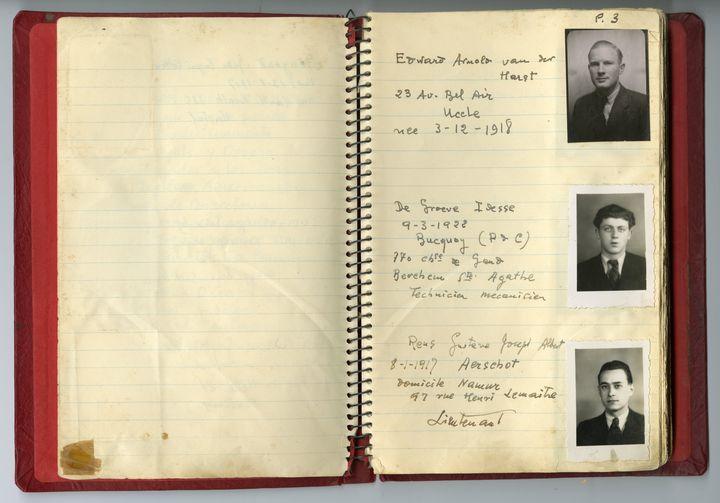 P. 3
Edward Arnold van der
Harst
23 Av. Bel Air
Uccle
nee 3-12-1918
De Groeve Idesse
9-3-1922
Bucquoy (P d C)
770 chsée de Gand
Berchem Ste Agathe
Technicien mecanicien
Rens Gustave Joseph Albert
8-1-1917 Aerschot
domicile Namur
97 rue Henri Lemaitre
Lieutenant